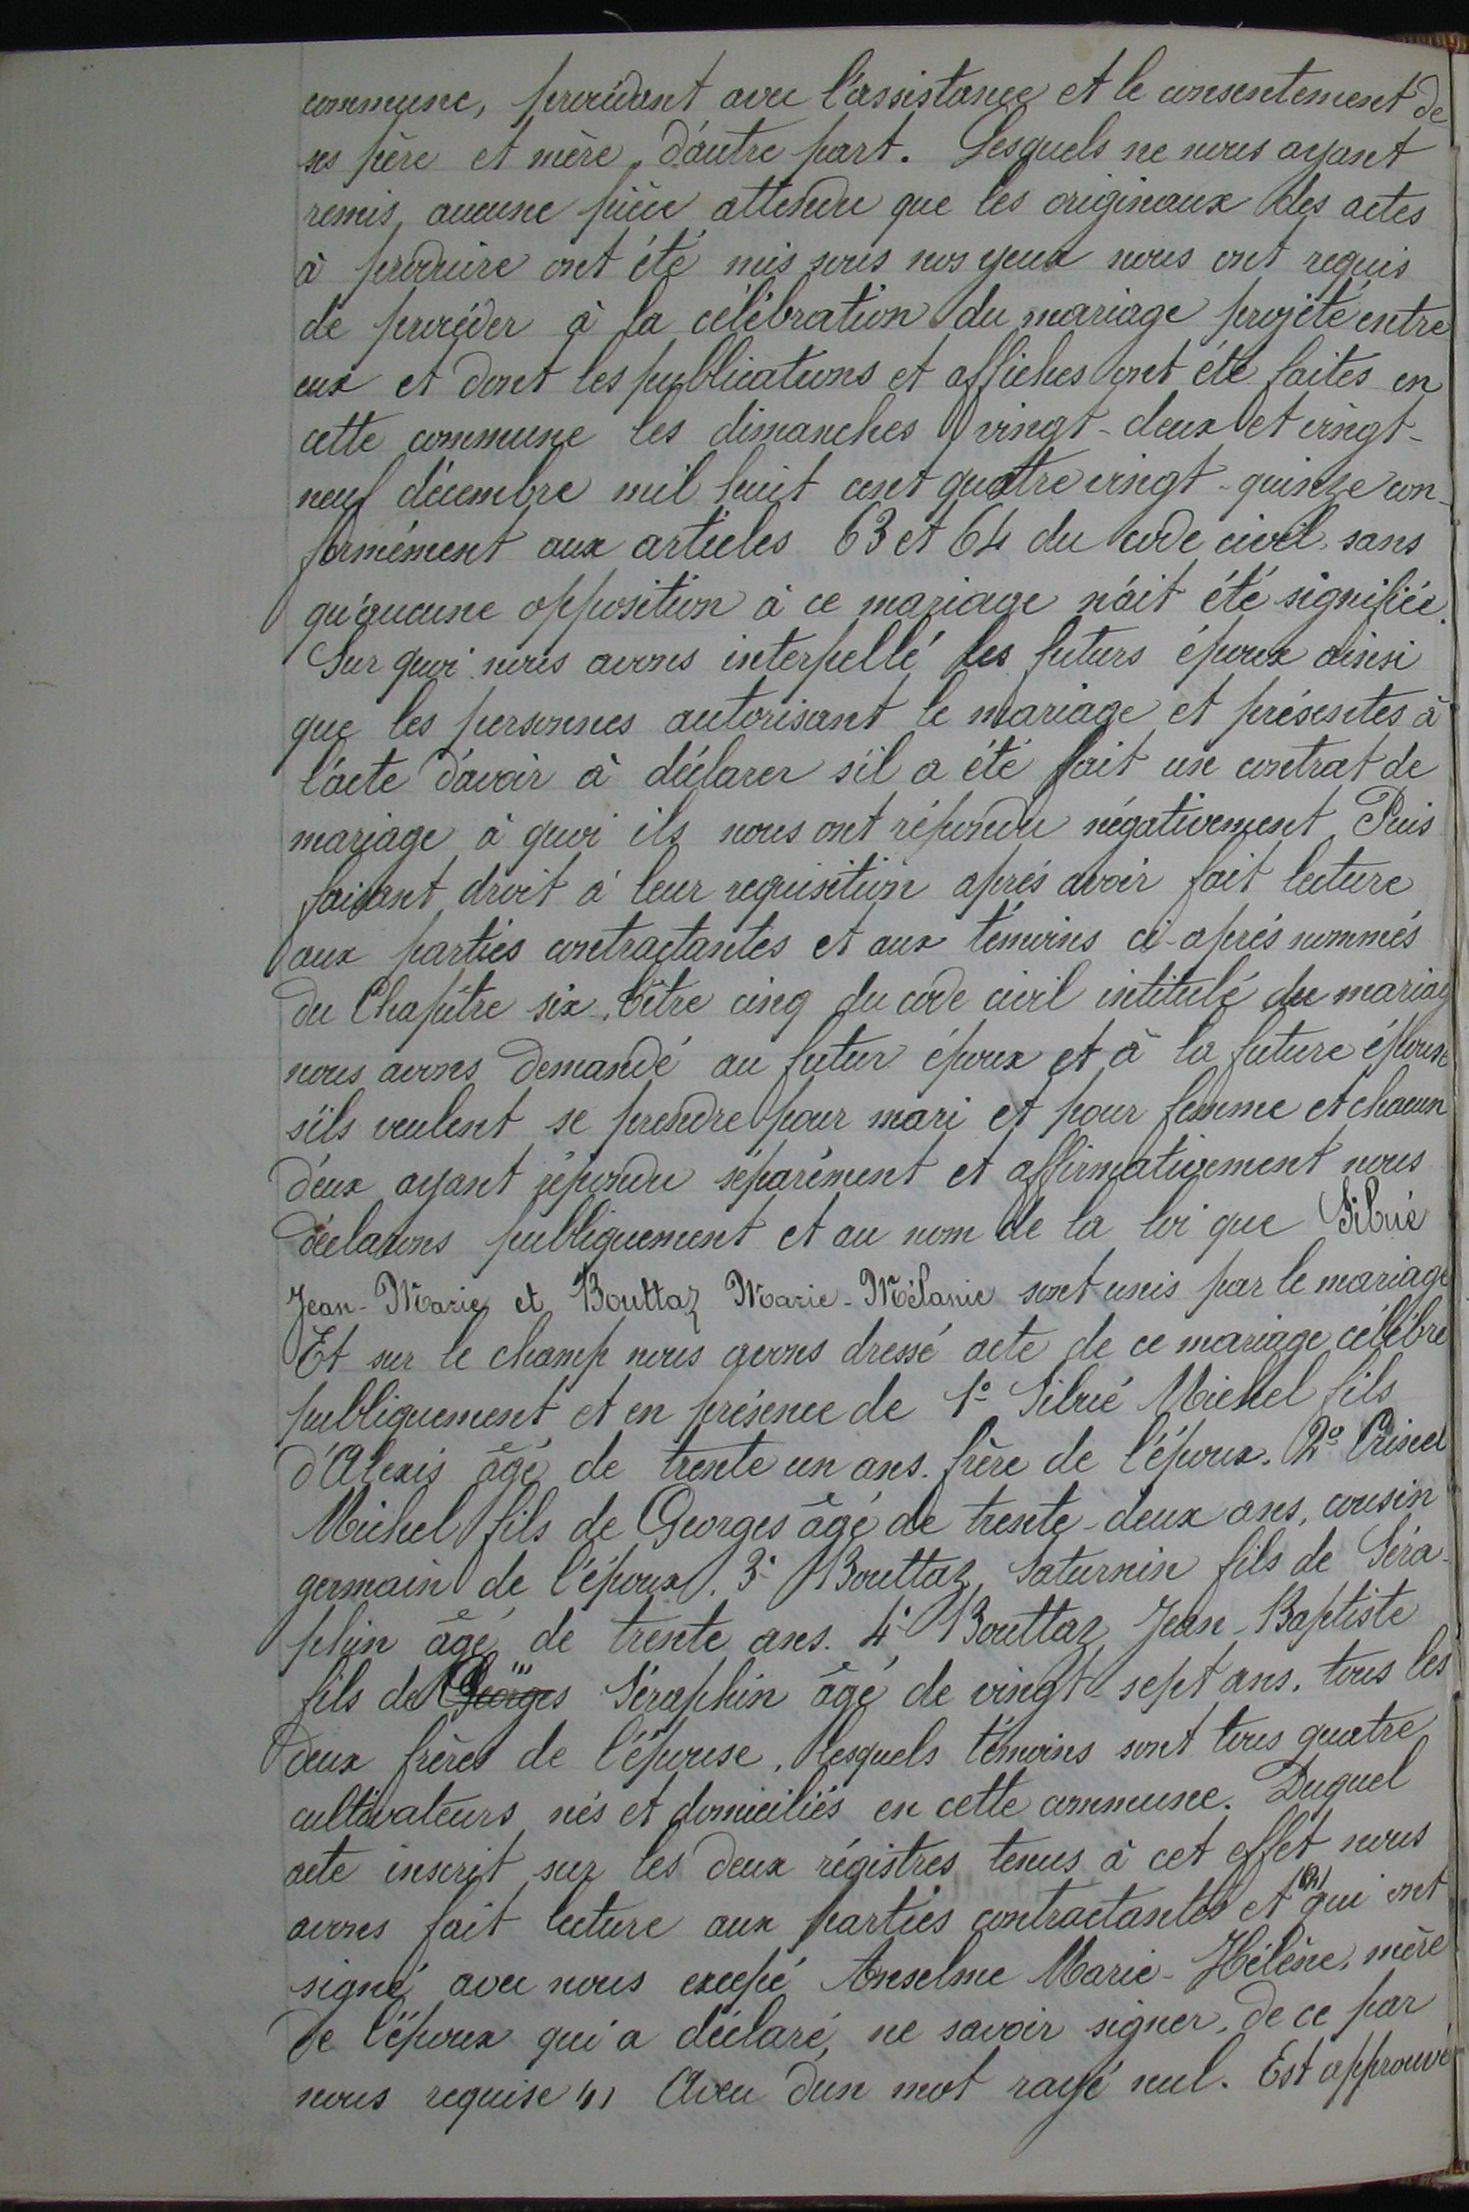 commune, procédant avec l'assistance et le consentement de
ses père et mère, d'autre part. Lesquels ne nous ayant
remis aucune pièce attendu que les originaux des actes
à produire ont été mis sous nos yeux nous ont requis
de procéder à la célébration du mariage projeté entre
eux et dont les publications et affiches ont été faites en
cette commune les dimanches vingt-deux et vingt-
neuf décembre mil huit cent quatre vingt-quinze con-
formément aux articles 63 et 64 du code civil, sans
qu'aucune opposition à ce mariage n'ait été signifiée.
Sur quoi nous avons interpellé les futurs époux ainsi
que les personnes autorisant le mariage et présentes à
l'acte d'avoir à déclarer s'il a été fait un contrat de
mariage à quoi ils nous ont répondu négativement. Puis
faisant droit à leur requisition après avoir fait lecture
aux parties contractantes et aux témoins ci-après nommés
du Chapitre six, titre cinq du code civil intitulé du mariag
nous avons demandé au futur époux et à la future épouse
s'ils veulent se prendre pour mari et pour femme et chacun
d'eux ayant répondu séparément et affirmativement nous
déclarons publiquement et au nom de la loi que Silvié
Jean-Marie et Bouttaz Marie-Mélanie sont unis par le mariage
Et sur le champ nous avons dressé acte de ce mariage célébré
publiquement et en présence de 1° Silvié Michel fils
d'Alexis âgé de trente un ans. frère de l'époux. 2°
Michel fils de Georges âgé de trente-deux ans, cousin
germain de l'époux. 3° Bouttaz Saturnin fils de Séra-
phin âgé de trente ans. 4° Bouttaz Jean-Baptiste
fils de Georges Séraphin âgé de vingt-sept ans. tous les
deux frères de l'épouse, lesquels témoins sont tous quatre
cultivateurs nés et domiciliés en cette commune. Duquel
acte inscrit sur les deux régistres tenus à cet effet nous
avons fait lecture aux parties contractantes et qui ont
signé avec nous excepé Anselme Marie-Hélène, mère
de l'époux qui a déclaré, ne savoir signer, de ce par
nous requise (1) Aveu d'un mot rayé nul. Est approuvé